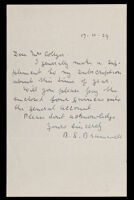 17-11-29
Dear Mr
I generally make a sup-
plement to my subscription
about this time of year
Will you please pay the
enclosed four guineas into
the general account.
Please don't acknowledge
Yours sincerely